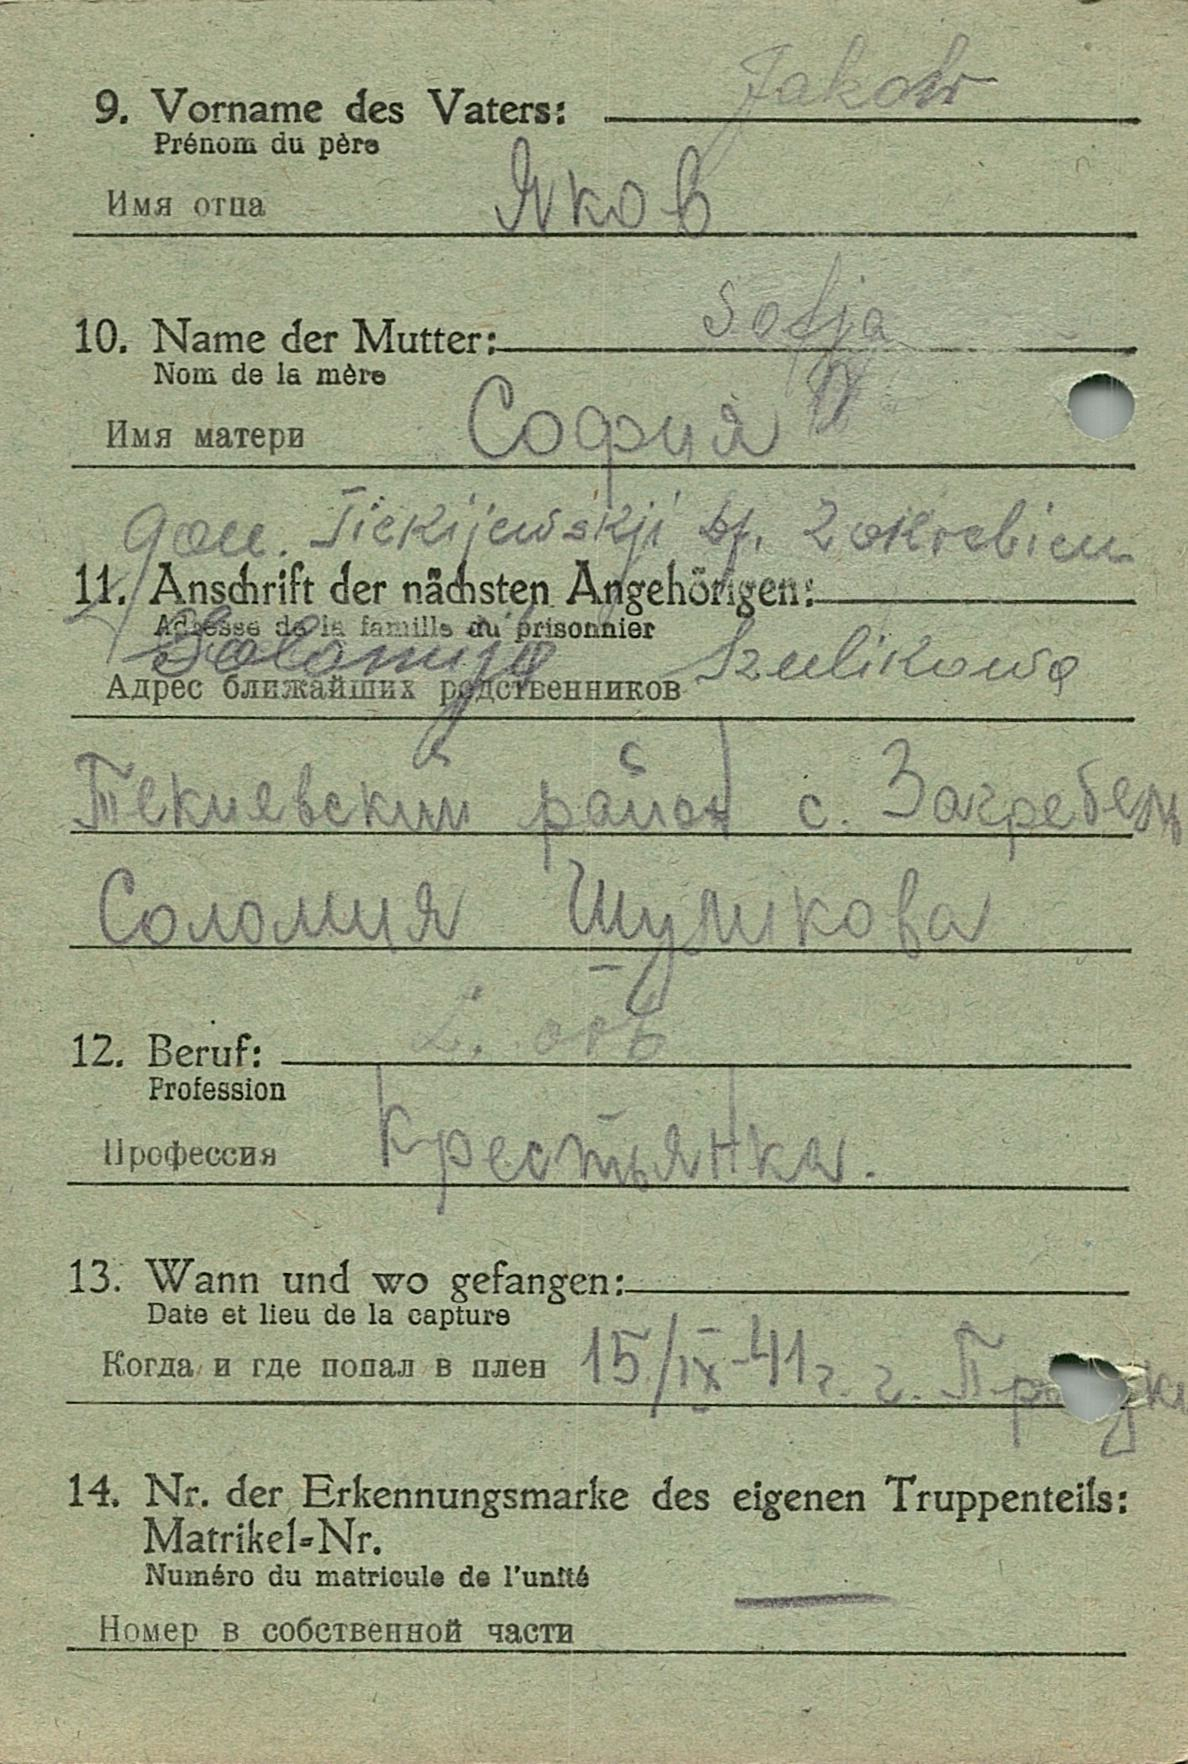 9. Vorname des Vaters: Jakow
Prénom du père
Имя отца Яков
10. Name der Mutter: Sofja
Nom de la mère
Имя матери София
11. Anschrift der nächsten Angehörigen:
Adresse de la famille du prisonnier
Szulikowa
Адрес ближайших родственников
Текиевский район с.
Соломия Шуликова
12. Beruf:
Profession
Профессия Крестьянка.
13. Wann und wo gefangen:
Date et lieu de la capture
Когда и где попал в плен 15/IX-41 г. г.
14. Nr. der Erkennungsmarke des eigenen Truppenteils:
Matrikel=Nr.
Numéro du matricule de l'unité
Номер в собственной части —